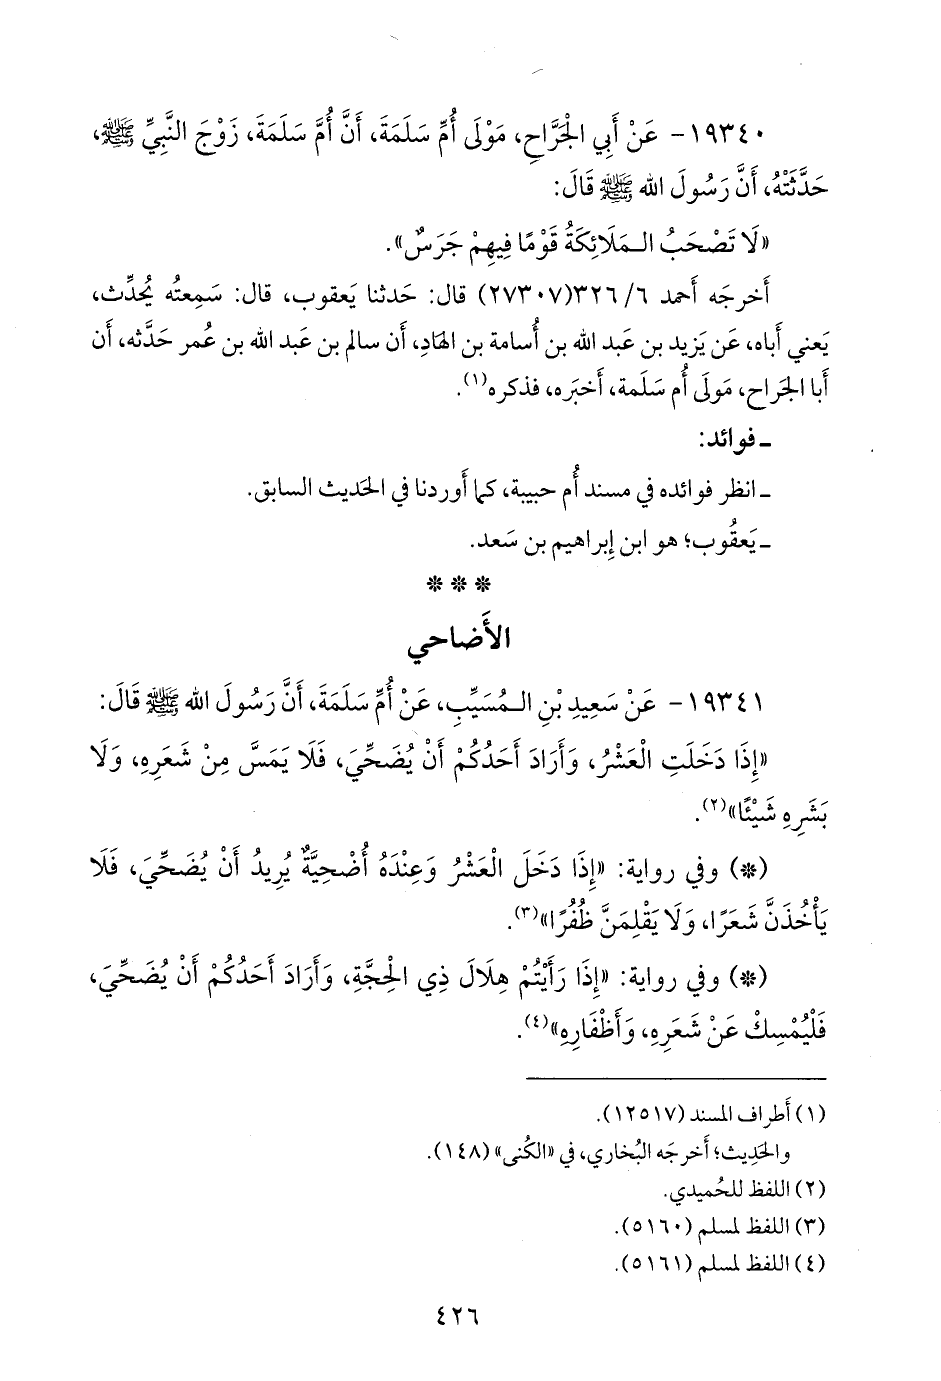 ١٩٣٤٠- عَنْ أَبِي الْجَرَّاحِ، مَوْلَى أُمِّ سَلَمَةَ، أَنَّ أُمَّ سَلَمَةَ، زَوْجَ النَّبِيِّ ﷺ،
حَدَّثَتْهُ، أَنَّ رَسُولَ الله ﷺ قَالَ:
«لَا تَصْحَبُ الـمَلَائِكَةُ قَوْمًا فِيهِمْ جَرَسٌ».
أَخرجَه أَحمد ٦/ ٣٢٦(٢٧٣٠٧) قال: حَدثنا يَعقوب، قال: سَمِعتُه يُحدِّث،
يَعني أَباه، عَن يَزيد بن عَبد الله بن أُسامة بن الهَادِ، أَن سالم بن عَبد الله بن عُمر حَدَّثه، أَن
أَبا الجَراح، مَولَى أُم سَلَمة، أَخبَره، فذكره(١).
ـ فوائد:
ـ انظر فوائده في مسند أُم حبيبة، كما أَوردنا في الحَديث السابق.
ـ يَعقُوب؛ هو ابن إِبراهيم بن سَعد.
* * *
الأَضاحي
١٩٣٤١- عَنْ سَعِيدِ بْنِ الـمُسَيِّبِ، عَنْ أُمِّ سَلَمَةَ، أَنَّ رَسُولَ الله ﷺ قَالَ:
«إِذَا دَخَلَتِ الْعَشْرُ، وَأَرَادَ أَحَدُكُمْ أَنْ يُضَحِّيَ، فَلَا يَمَسَّ مِنْ شَعَرِهِ، وَلَا
بَشَرِهِ شَيْئًا»(٢).
(*) وفي رواية: «إِذَا دَخَلَ الْعَشْرُ وَعِنْدَهُ أُضْحِيَّةٌ يُرِيدُ أَنْ يُضَحِّيَ، فَلَا
يَأْخُذَنَّ شَعَرًا، وَلَا يَقْلِمَنَّ ظُفُرًا»(٣).
(*) وفي رواية: «إِذَا رَأَيْتُمْ هِلَالَ ذِي الْحِجَّةِ، وَأَرَادَ أَحَدُكُمْ أَنْ يُضَحِّيَ،
فَلْيُمْسِكْ عَنْ شَعَرِهِ، وَأَظْفَارِهِ»(٤).
(١) أَطراف المسند (١٢٥١٧).
والحَدِيث؛ أَخرجَه البُخاري، في «الكُنى» (١٤٨).
(٢) اللفظ للحُميدي.
(٣) اللفظ لمسلم (٥١٦٠).
(٤) اللفظ لمسلم (٥١٦١).
٤٢٦